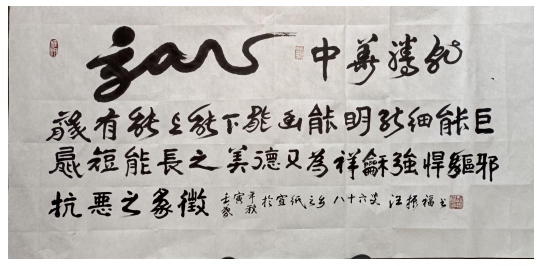 龍 中華騰龍
龍有能上能下能幽能明能細能巨
能短能長之美德又為祥龢強悍驅邪
抗悪之象徵 壬寅年秋於宣纸之乡八十六叟汪振福书